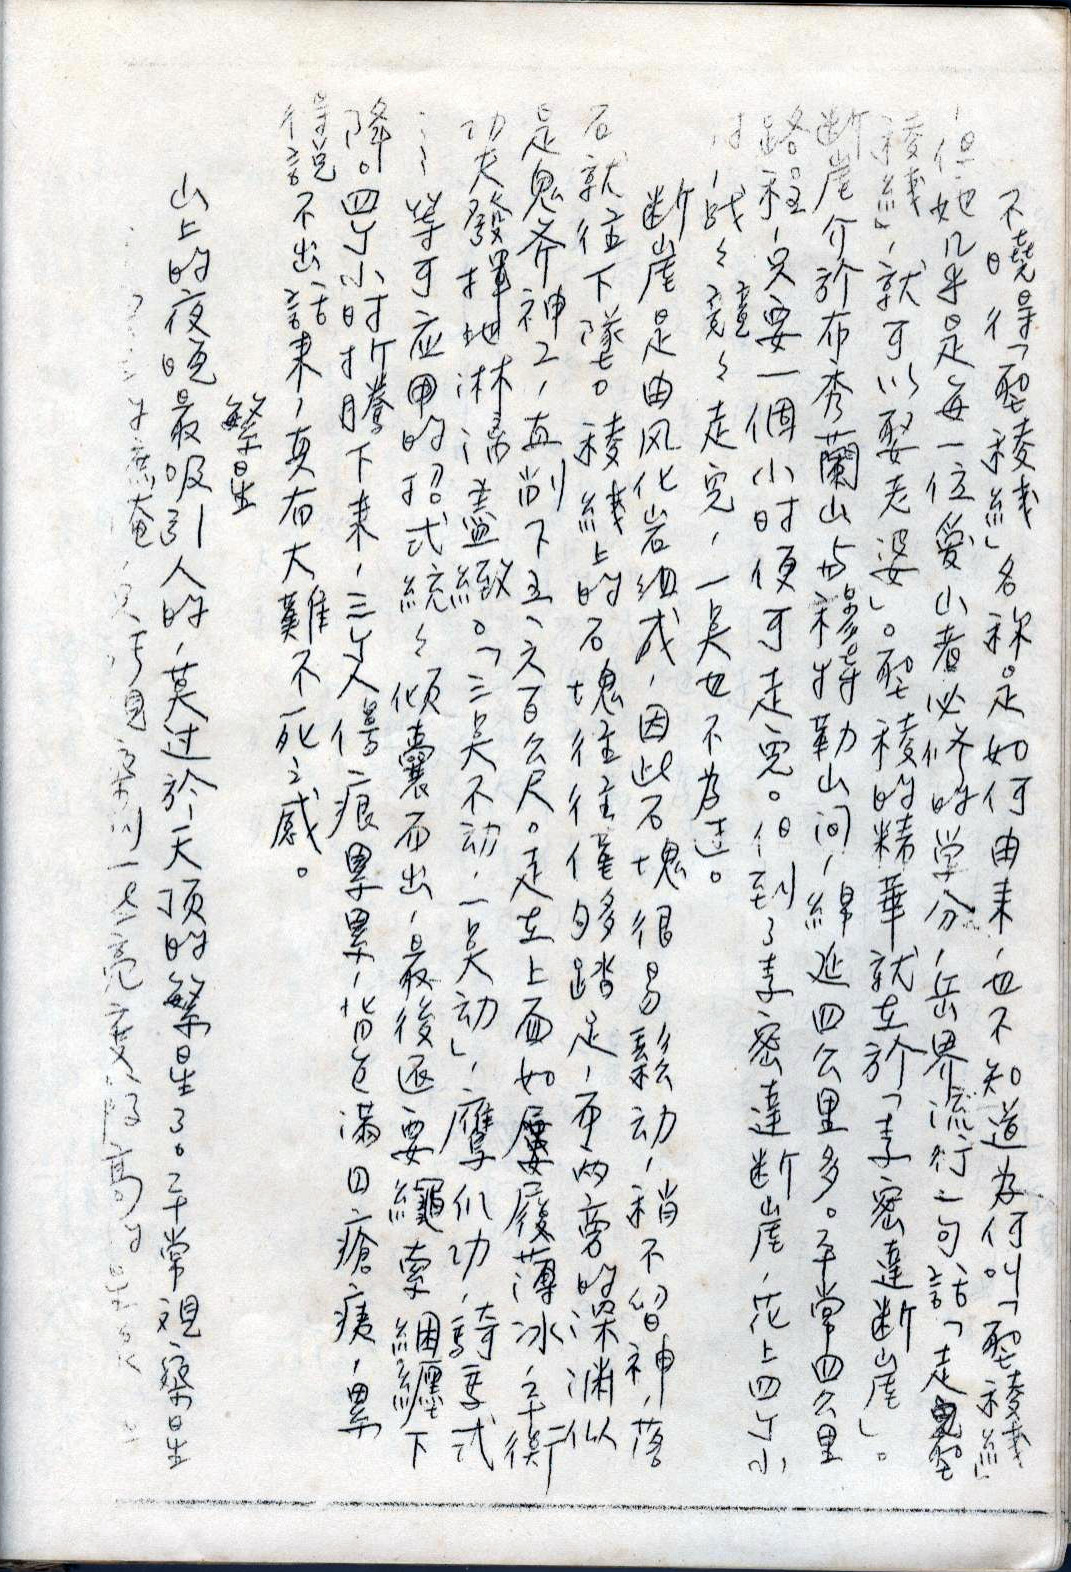 不曉得「聖稜線」名称是如何由来，也不知道為何叫「聖稜線」
，但她几乎是每一位愛山者必修的学分，岳界流行一句話「走完聖
稜線」，就可以娶老婆」。聖稜的精華就在於「素密達断崖」。
断崖介於布秀蘭山与穆特勒山间，綿延四公里多。平常四公里
路程，只要一個小时便可走完。但到了素密達断崖，花上四个小
时，战々兢々走完，一点也不為過。
断崖是由风化岩组成，因此石塊很易鬆动，稍不留神，落
石就往下墜。稜線上的石塊往往僅夠踏足，而兩旁的深渊似
是鬼斧神工，直削下五、六百公尺。走在上面如屢履薄冰，平衡
功夫發揮地淋漓盡緻。「三点不动，一点动」，鷹爪功，騎馬式
…等可应用的招式統々傾囊而出，最後还要繩索綑纏下
降。四个小时折騰下来，三个人傷痕累累，背包滿目瘡痍，累
得說不出話来，真有大難不死之感。
繁星
山上的夜晚最吸引人的，莫过於天顶的繁星了。平常視察星
一些亮度較高的星